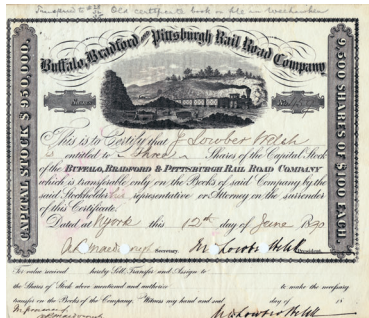 Old certificate book on file in
Buffalo, Bradford and Pittsburgh Rail Road Company
CAPITAL STOCK $950,000.
9,500 SHARES OF $100 EACH.
This is to Certify that J Lowber Welsh
is entitled to Three Shares of the Capital Stock
of the BUFFALO, BRADFORD & PITTSBURGH RAIL ROAD COMPANY
which is transferable only on the Books of said Company by the
said Stockholder representative or Attorney on the surrender
of this Certificate.
Dated at N York this 12th day of June 1890
Secretary. President.
For value received hereby Sell, Transfer and Assign to
the Shares of Stock above mentioned and authorize to make the necessary
transfer on the Books of the Company. Witness my hand and seal day of 18
J Lowber Welsh